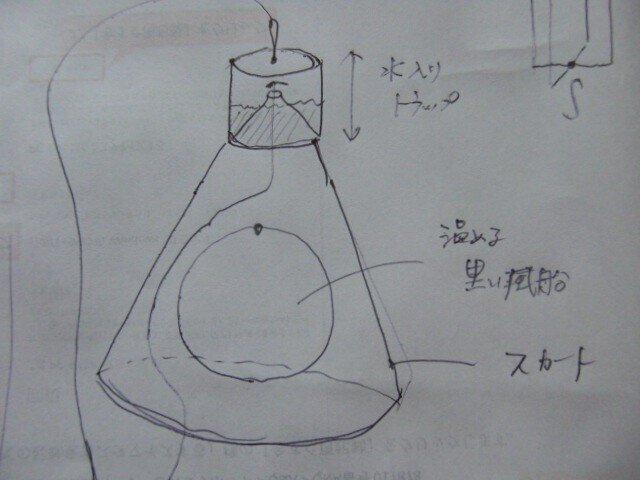 水入り
トラップ
S
温める
黒い風船
スカート